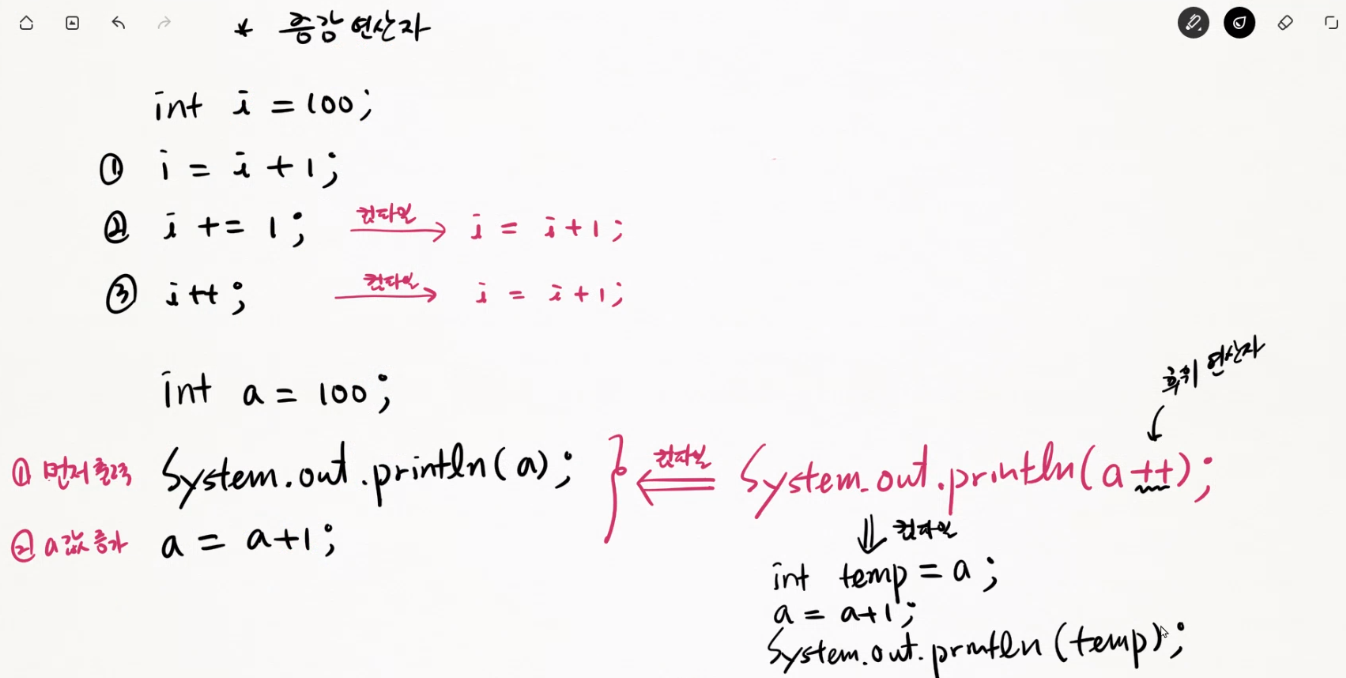 * 증감 연산자
int i = 100;
① i = i + 1;
② i += 1; 컴파일 i = i+1;
③ i++; 컴파일 i = i+1;
int a = 100;
후위 연산자
① 먼저 출력 System.out.println(a); 컴파일 System.out.println(a++);
② a값 증가 a = a+1;
컴파일
int temp = a;
a = a+1;
System.out.println(temp);